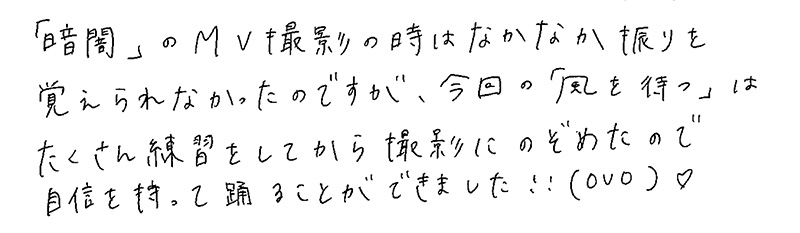 「暗闇」のMV撮影の時はなかなか振りを
覚えられなかったのですが、今回の「風を待つ」は
たくさん練習をしてから撮影にのぞめたので
自信を持って踊ることができました!!(OVO)♡